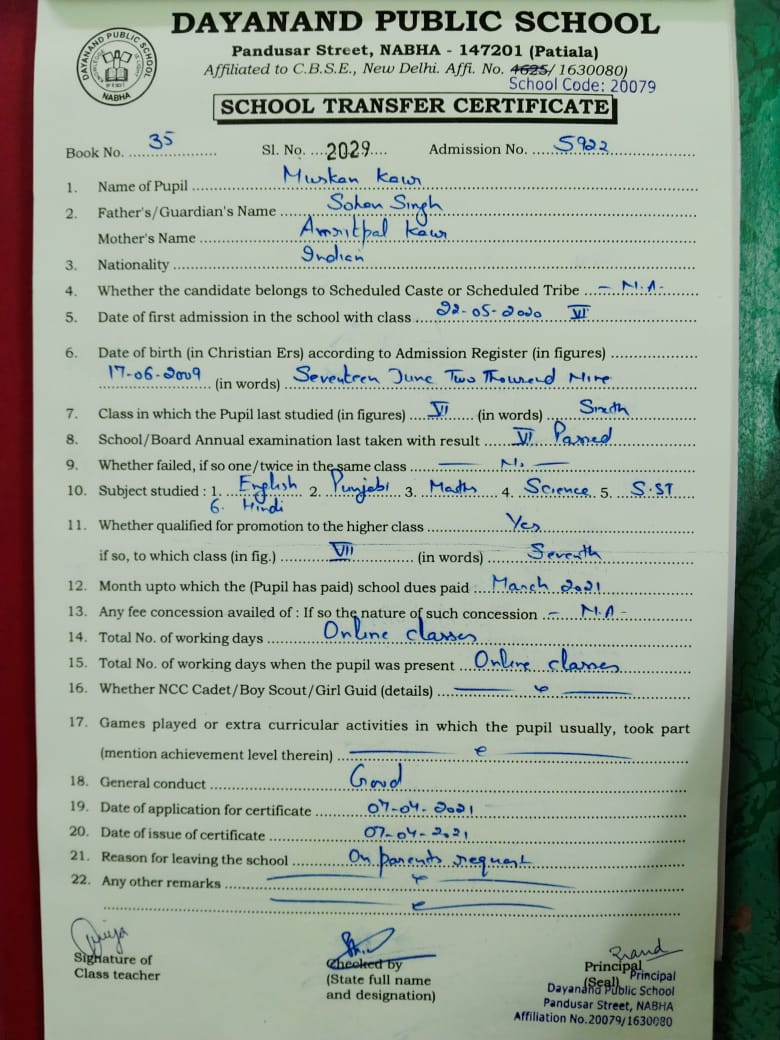 DAYANAND PUBLIC SCHOOL
Pandusar Street, NABHA - 147201 (Patiala)
Affiliated to C.B.S.E., New Delhi. Affi. No. 4625/1630080)
School Code: 20079
DAYANAND PUBLIC SCHOOL
NABHA
SCHOOL TRANSFER CERTIFICATE
Book No. 35 Sl. No. 2029 Admission No. 5922
1. Name of Pupil Muskan Kaur
2. Father's/Guardian's Name Sohan Singh
Mother's Name Amritpal Kaur
3. Nationality Indian
4. Whether the candidate belongs to Scheduled Caste or Scheduled Tribe - N.A-
5. Date of first admission in the school with class 22-05-2020 VI
6. Date of birth (in Christian Ers) according to Admission Register (in figures)
17-06-2009 (in words) Seventeen June Two Thousand Nine
7. Class in which the Pupil last studied (in figures) VI (in words) Sixth
8. School/Board Annual examination last taken with result VI Passed
9. Whether failed, if so one/twice in the same class — No —
10. Subject studied : 1. English 2. Punjabi 3. Maths 4. Science 5. S.ST
6. Hindi
11. Whether qualified for promotion to the higher class Yes
if so, to which class (in fig.) VII (in words) Seventh
12. Month upto which the (Pupil has paid) school dues paid March 2021
13. Any fee concession availed of : If so the nature of such concession - N.A -
14. Total No. of working days Online classes
15. Total No. of working days when the pupil was present Online classes
16. Whether NCC Cadet/Boy Scout/Girl Guid (details)
17. Games played or extra curricular activities in which the pupil usually, took part
(mention achievement level therein)
18. General conduct Good
19. Date of application for certificate 07-04-2021
20. Date of issue of certificate 07-04-2021
21. Reason for leaving the school On parents request
22. Any other remarks
Signature of
Class teacher
Checked by
(State full name
and designation)
Principal
(Seal)
Principal
Dayanand Public School
Pandusar Street, NABHA
Affiliation No.20079/1630080